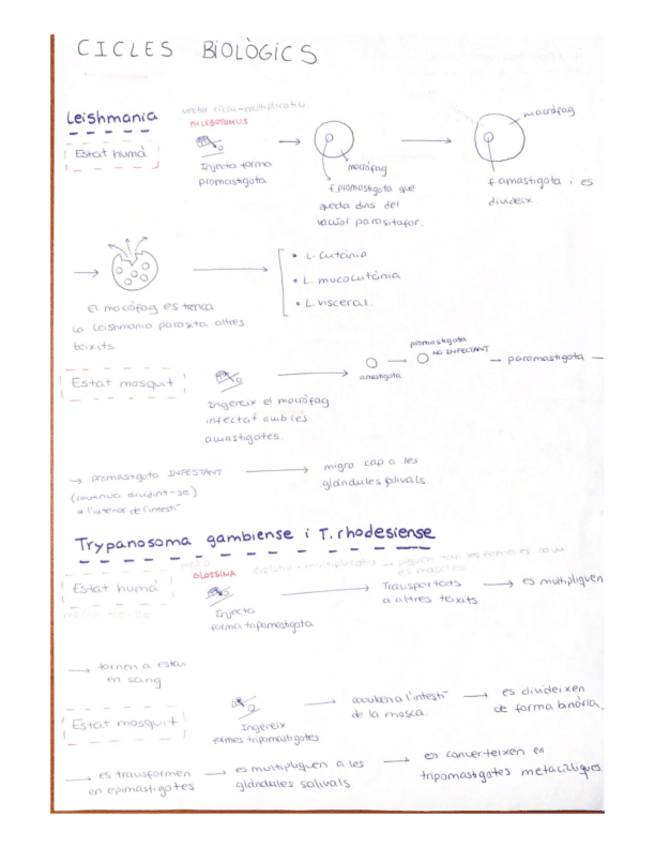 CICLES BIOLÒGICS
Leishmania
vector cíclic-multiplicatiu
PHLEBOTOMUS
Estat humà
Injecta forma
promastigota
macròfag
f. promastigota que
queda dins del
vacúol parasitafor.
macròfag
f amastigota i es
divideix.
El macròfag es trenca
La Leishmania parasita altres
teixits.
• L. Cutània
• L. mucocutània
• L. visceral.
Estat mosquit
Ingereix el macròfag
infectat amb les
amastigotes.
amastigota
promastigota
NO INFECTANT
paramastigota
promastigota INFESTANT
(continua dividint-se)
a l'interior de l'intestí
migra cap a les
glàndules salivals
Trypanosoma gambiense i T. rhodesiense
GLOSSINA
Estat humà
Injecta
forma tripomastigota
Transportats
a altres teixits
es multipliquen
tornen a estar
en sang
Estat mosquit
Ingereix
formes tripomastigotes
acuden a l'intestí
de la mosca.
es divideixen
de forma binària.
es transformen
en epimastigotes
es multipliquen a les
glàndules salivals
es converteixen en
tripomastigotes metacícliques